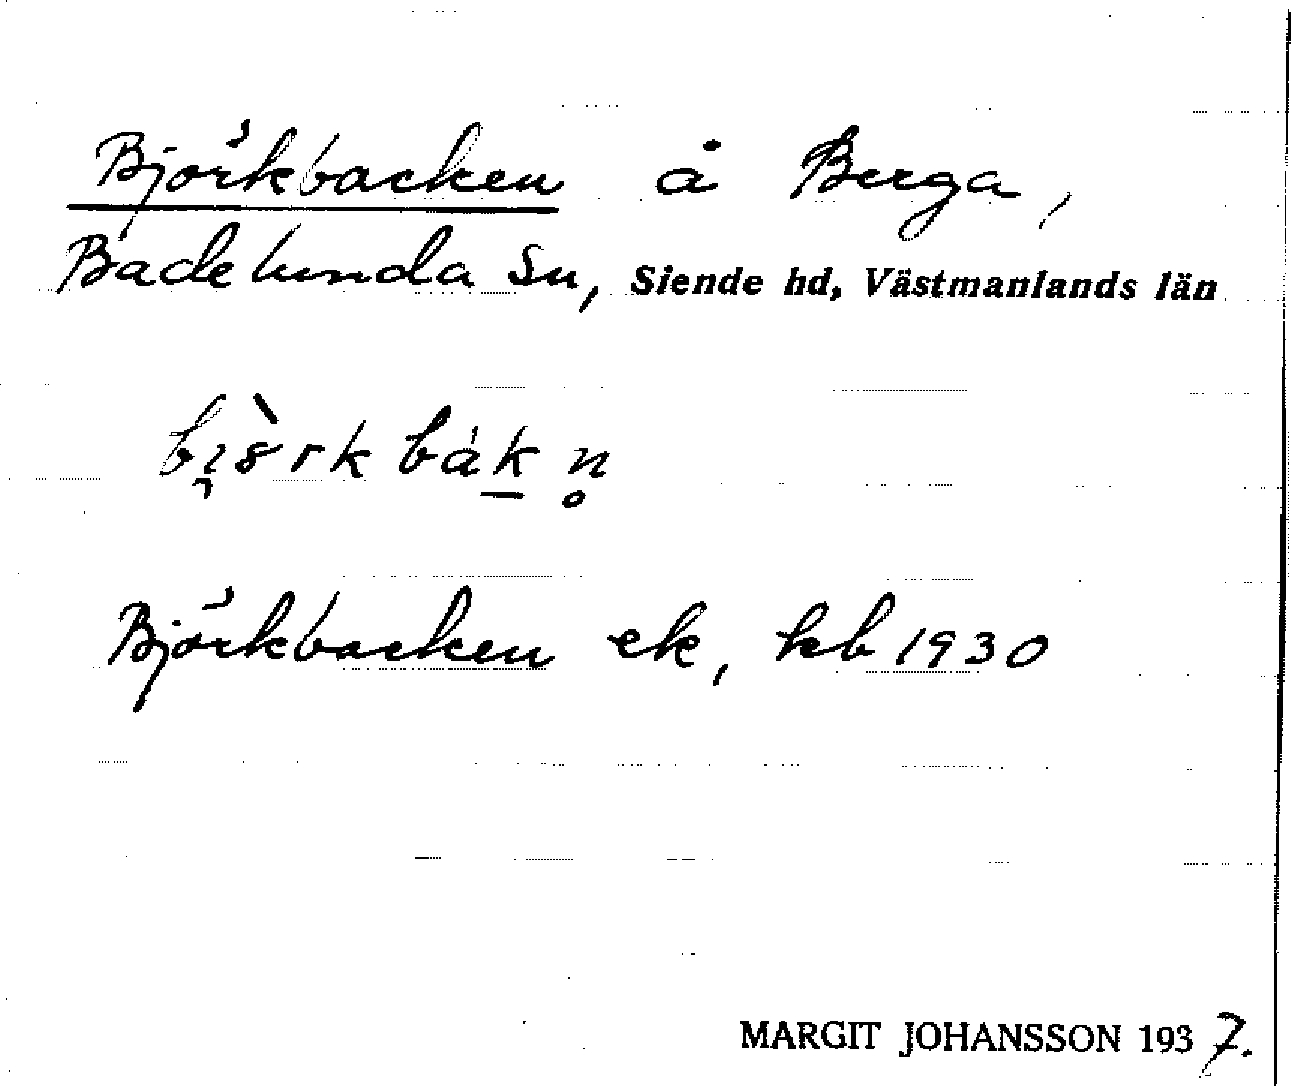 Björkbacken å Berga,
Badelunda sn, Siende hd, Västmanlands län
bi̯ò̈rkbák̠n̥
Björkbacken ek, kb 1930
MARGIT JOHANSSON 1937.